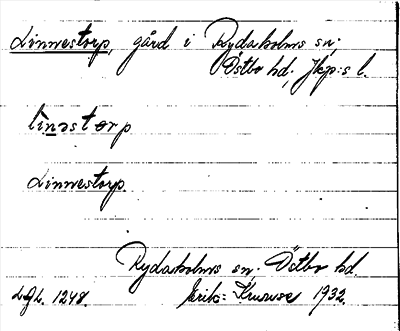 Linnestorp, gård i Rydaholms sn;
Östbo hd; Jkp:s l.
linəstɵrp
Linnestorp.
Rydaholms sn. Östbo hd.
LGL. 1248. Erik 1932.